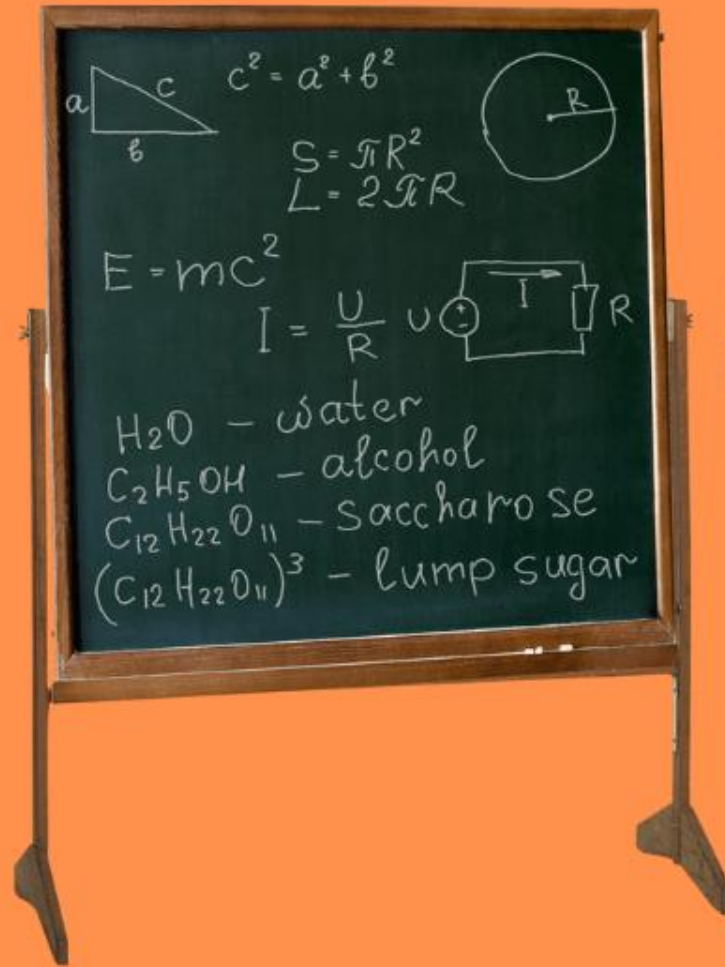 a c b
c² = a² + b²
R
S = πR²
L = 2πR
E = mc²
I = U/R
U + - I R
H₂O – water
C₂H₅OH – alcohol
C₁₂H₂₂O₁₁ – saccharose
(C₁₂H₂₂O₁₁)³ – lump sugar